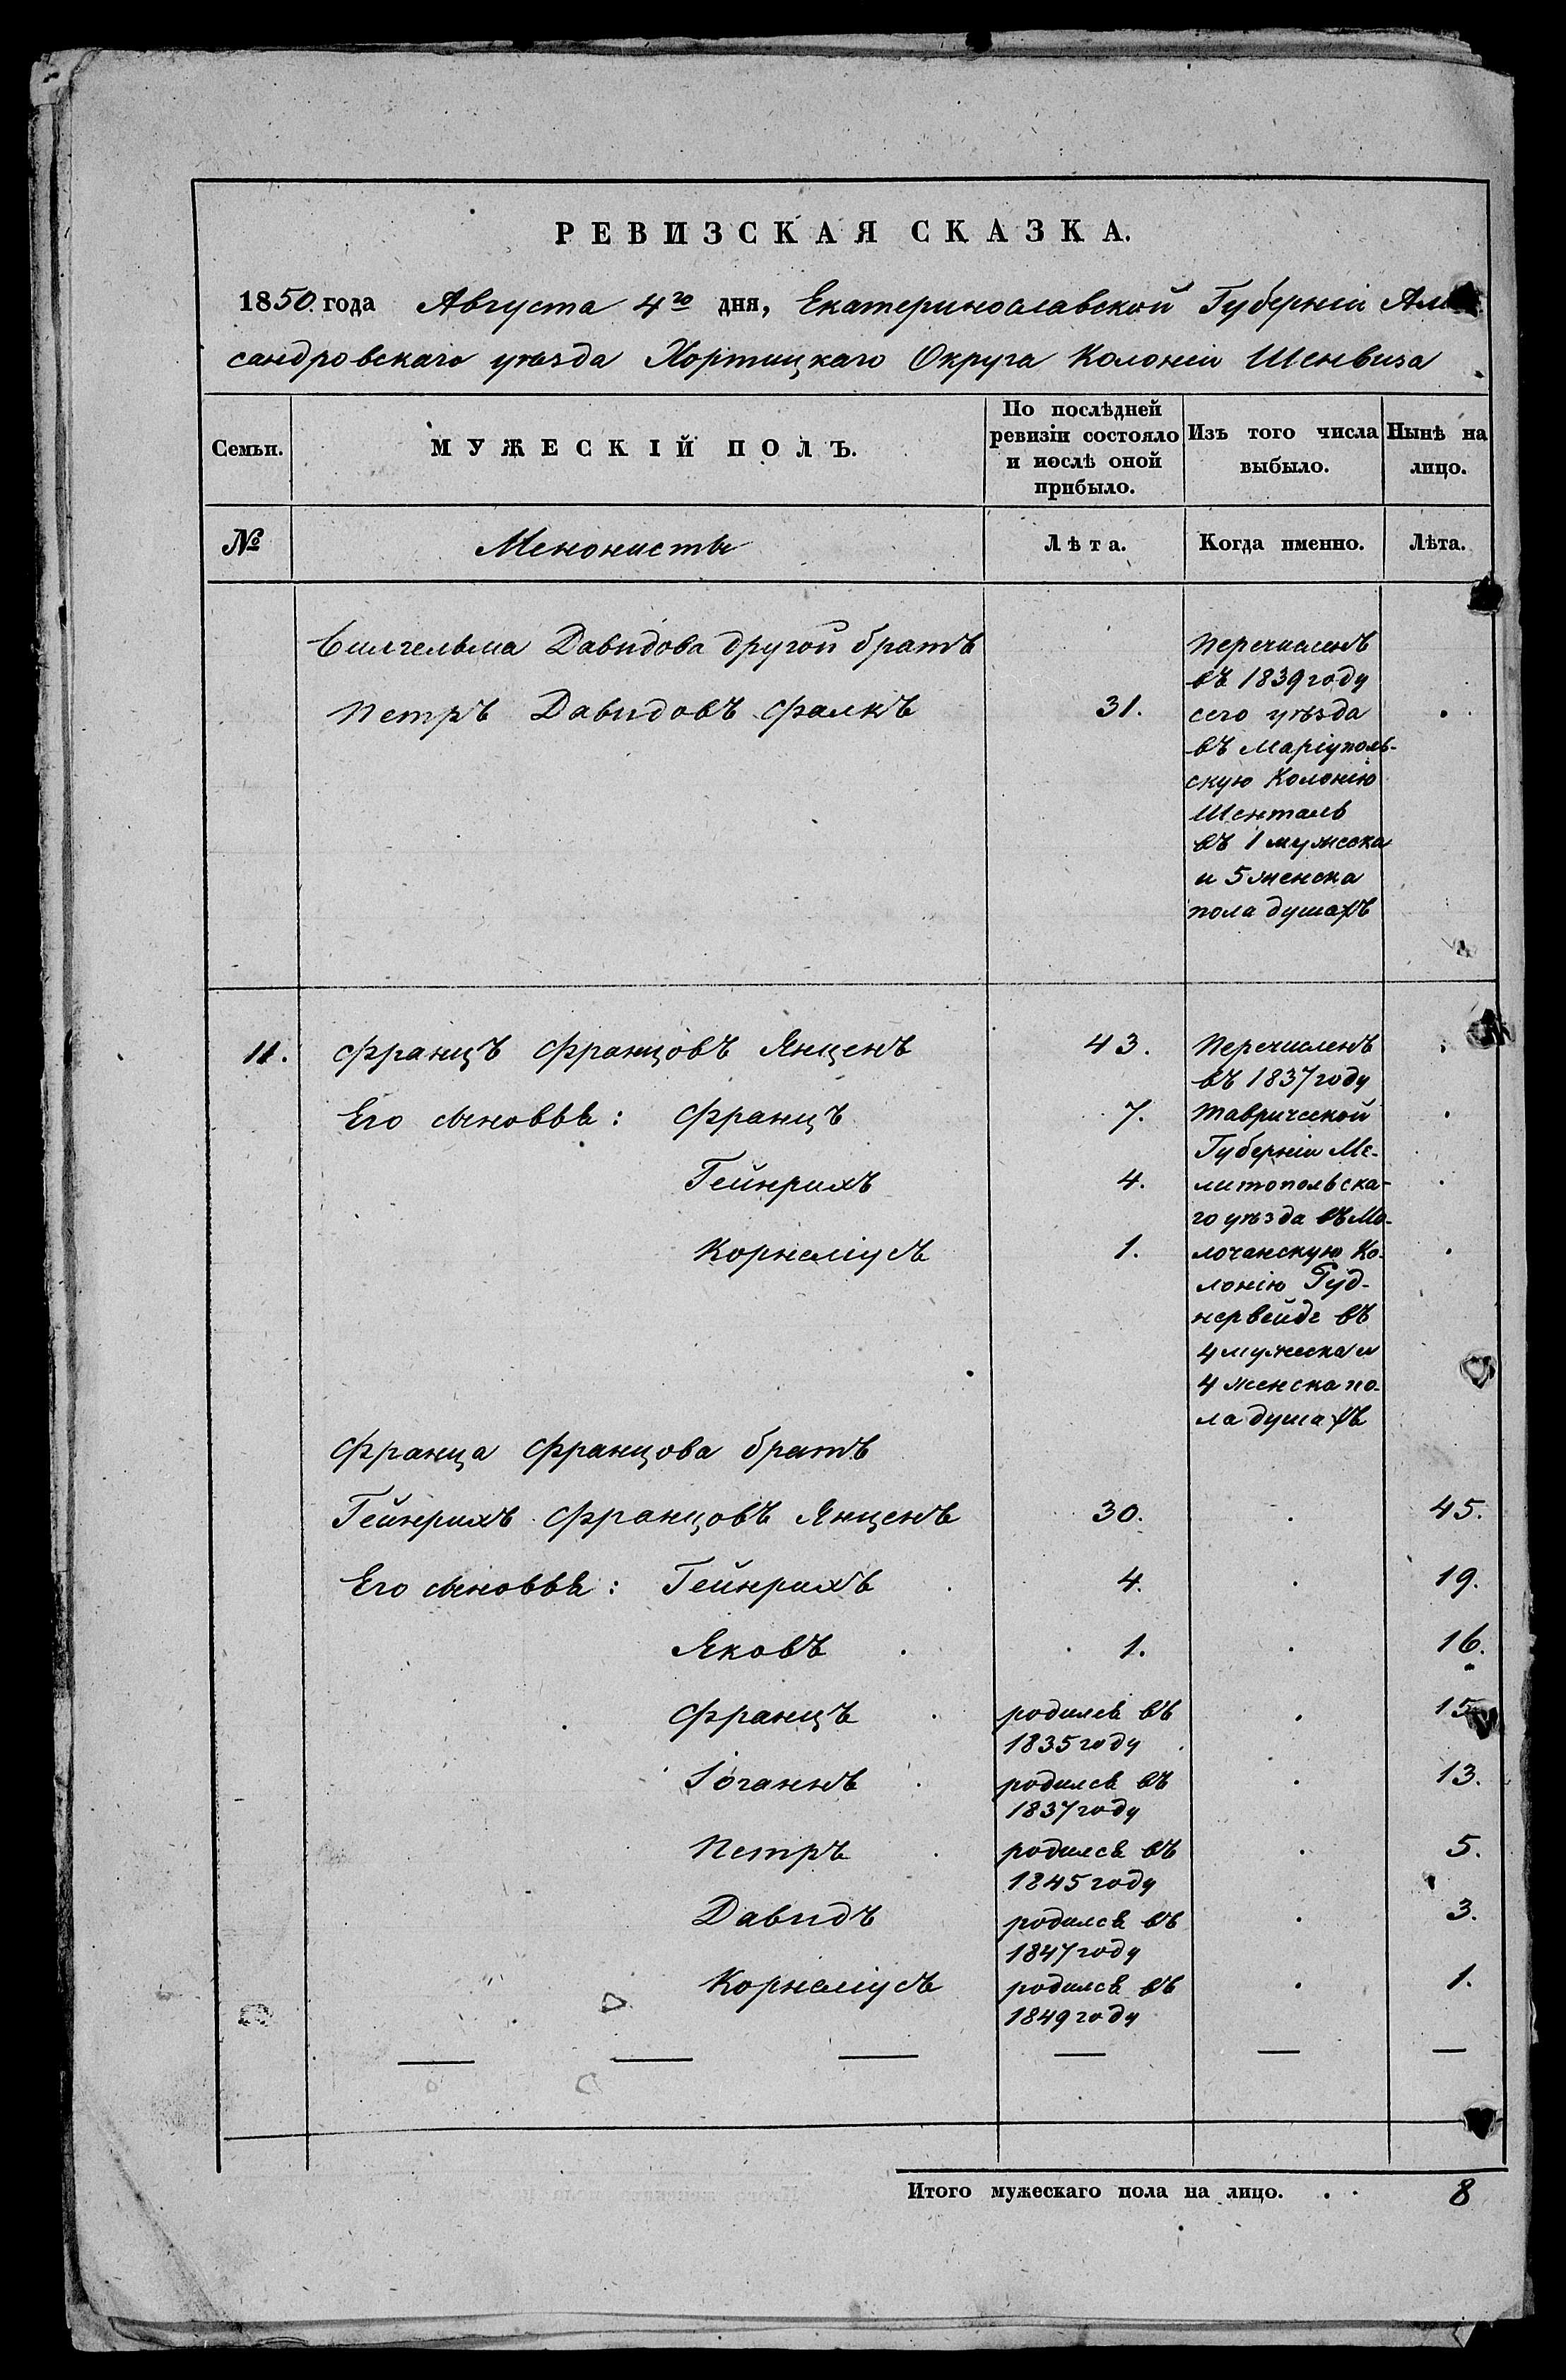 РЕВИЗСКАЯ СКАЗКА.
1850. года Августа 4го дня, Екатеринославской Губернiи Алек
сандровскаго уѣзда Хортицкаго Округа Колонiи Шенвиза
Семьи. МУЖЕСКIЙ ПОЛЪ. По послѣдней ревизiи состояло и послѣ оной прибыло. Изъ того числа выбыло. Нынѣ на лицо.
№ Менонисты Лѣта. Когда именно. Лѣта.
Вилгельма Давидова другой братъ
Петръ Давидовъ Фалкъ 31.
Перечисленъ
въ 1839 году
сего уѣзда
въ Марiуполь-
скую Колонiю
Шенталь
въ 1 мужеска
и 5 женска
пола душахъ
11. Францъ Францовъ Янценъ 43.
Его сыновья: Францъ 7.
Гейнрихъ 4.
Корнелiусъ 1.
Перечисленъ
въ 1837 году
Таврической
Губернiи Ме-
литопольска-
го уѣзда въ Мо-
лочанскую Ко-
лонiю Руд-
нервейде въ
4 мужеска и
4 женска по-
ла душахъ
Франца Францова братъ
Гейнрихъ Францовъ Янценъ 30. 45.
Его сыновья: Гейнрихъ 4. 19.
Яковъ 1. 16.
Францъ родился въ 15
1835 году
Iоганнъ родился въ 13.
1837 году
Петръ родился въ 5.
1845 году
Давидъ родился въ 3.
1847 году
Корнелiусъ родился въ 1.
1849 году
Итого мужескаго пола на лицо. . . 8